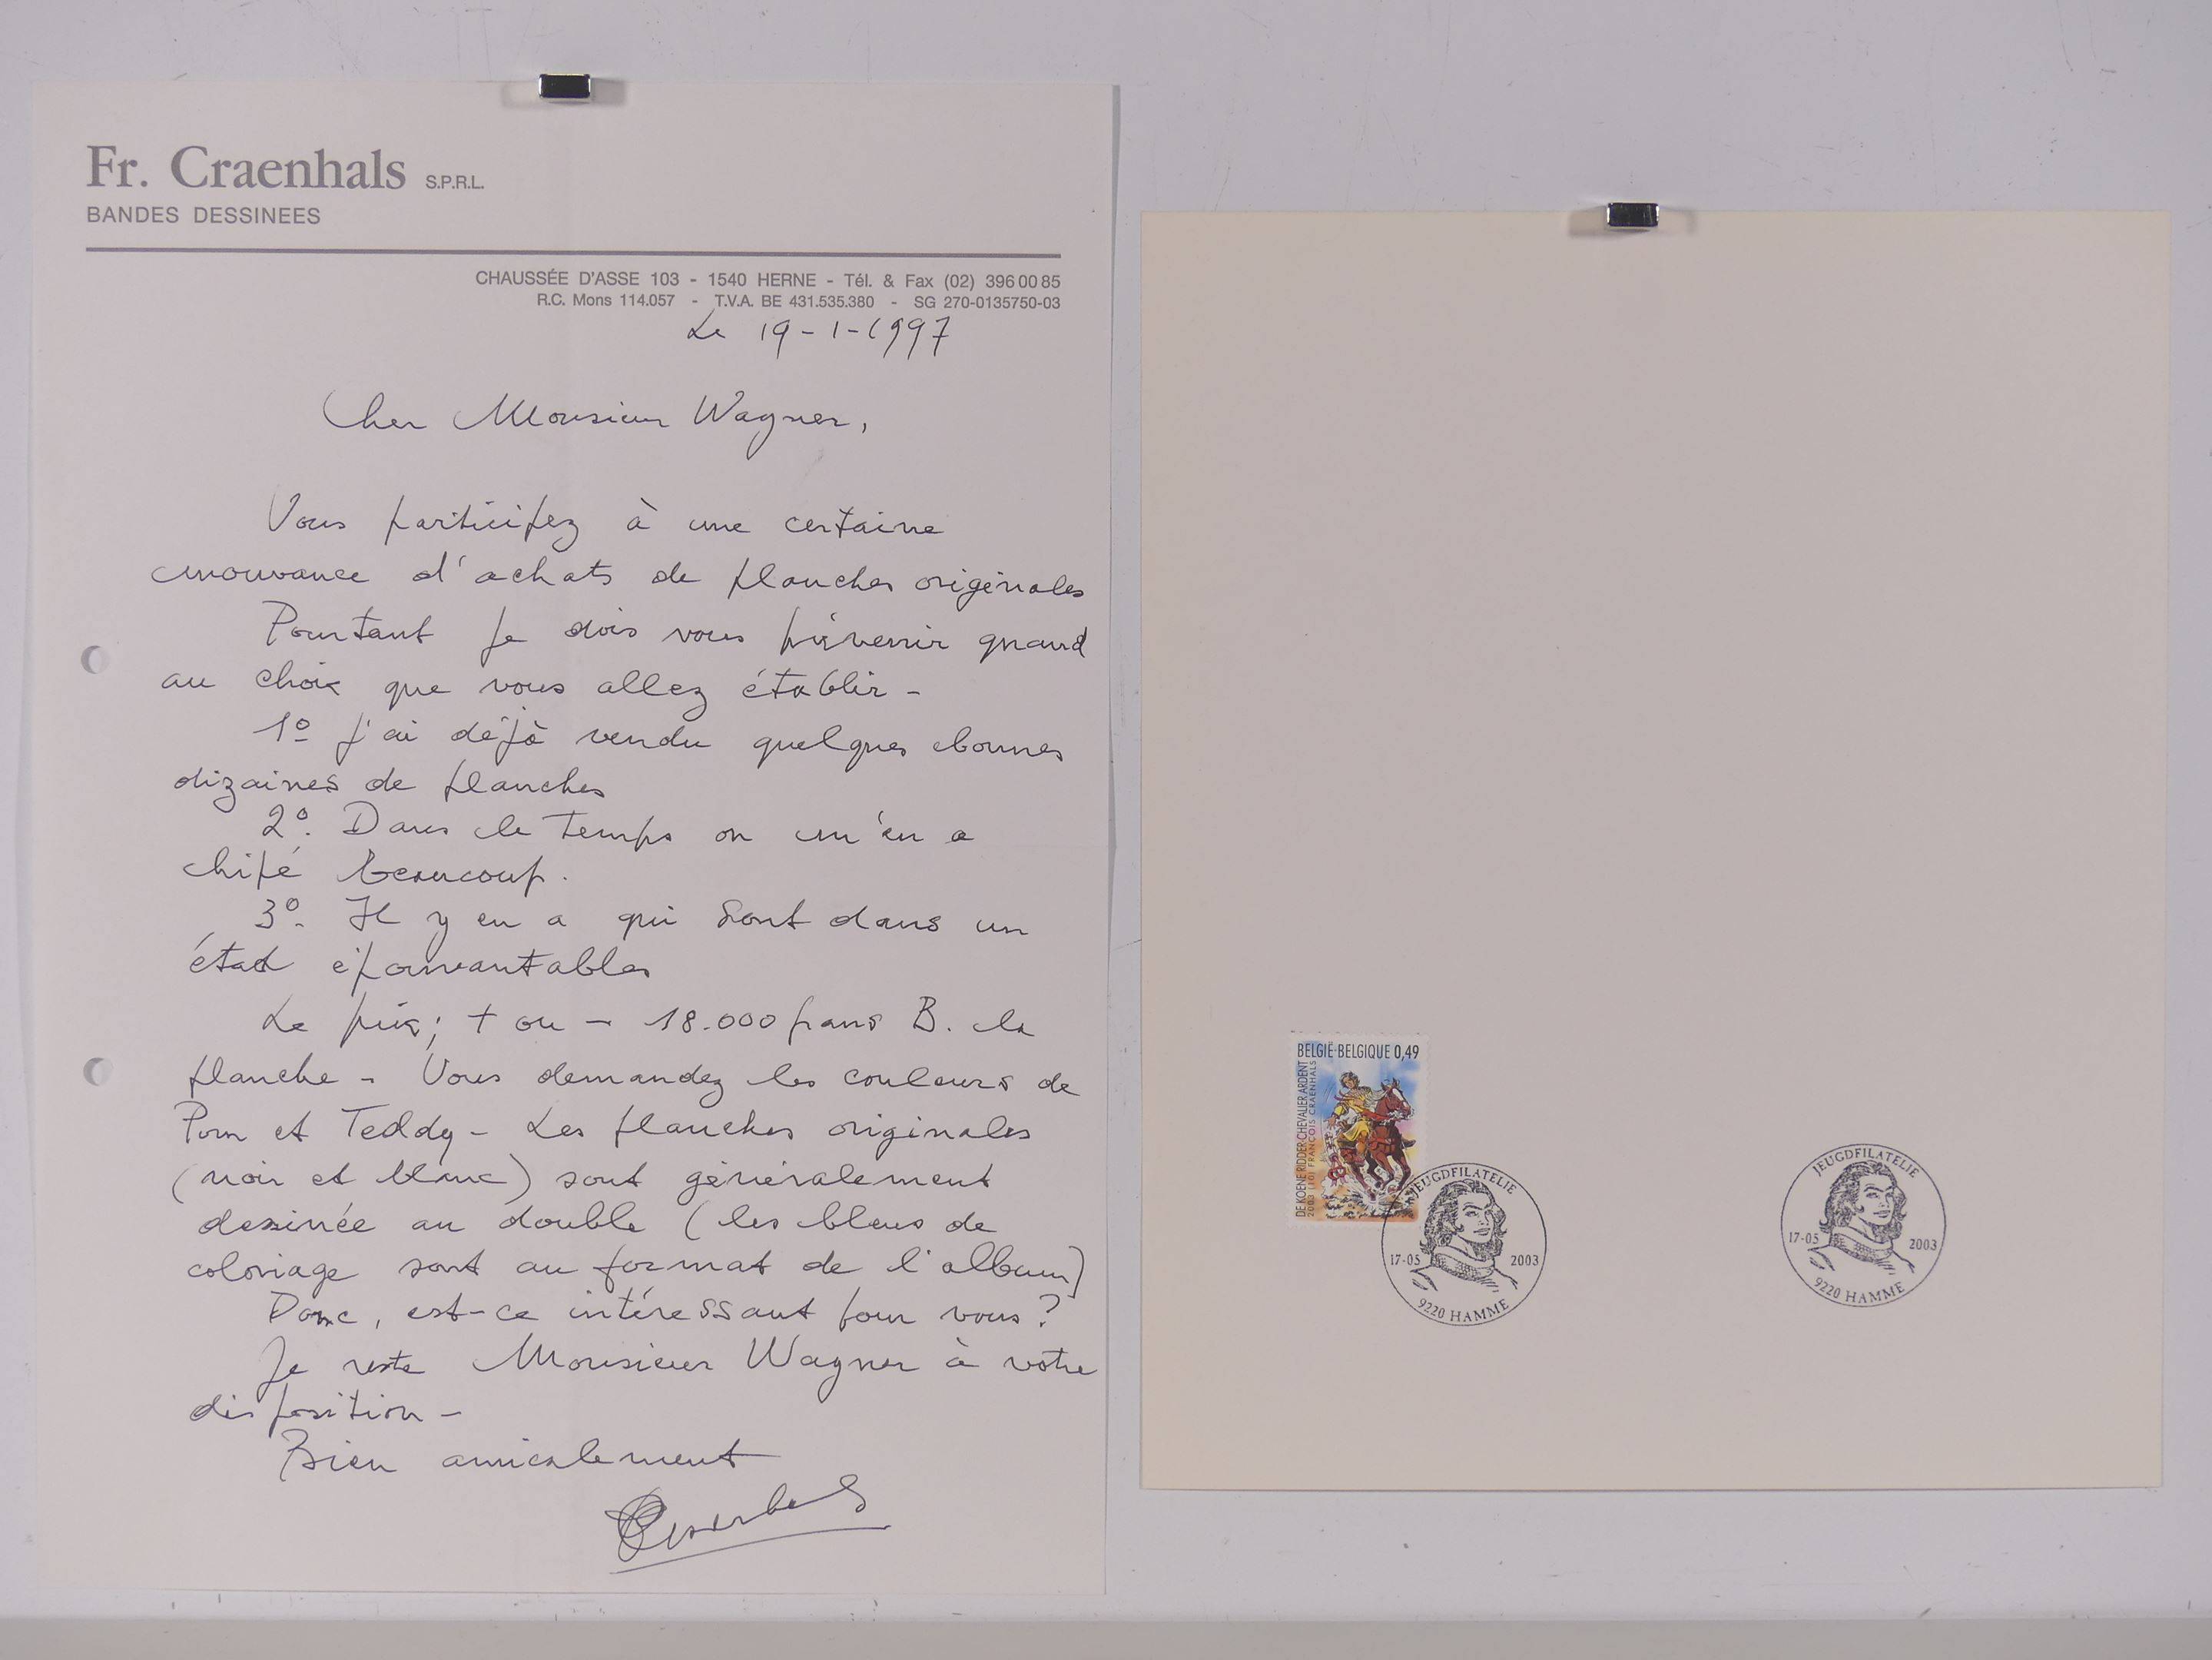 Fr. Craenhals S.P.R.L.
BANDES DESSINEES
CHAUSSÉE D'ASSE 103 - 1540 HERNE - Tél. & Fax (02) 396 00 85
R.C. Mons 114.057 - T.V.A. BE 431.535.380 - SG 270-0135750-03
Le 19-1-1997
Cher Monsieur Wagner,
Vous participez à une certaine
mouvance d'achats de planches originales
Pourtant je dois vous prévenir quand
au choix que vous allez établir -
1º j'ai déjà vendu quelques bonnes
dizaines de planches
2º. Dans le temps on m'en a
chipé beaucoup.
3º. Il y en a qui sont dans un
état épouvantables
Le prix; + ou - 18.000 frans B. la
planche - Vous demandez les couleurs de
Pom et Teddy - Les planches originales
(noir et blanc) sont généralement
dessinée au double (les bleus de
coloriage sont au format de l'album)
Donc, est-ce intéressant pour vous?
Je reste Monsieur Wagner à votre
disposition -
Bien amicalement
Craenhals
BELGIË-BELGIQUE 0,49
DE KOENE RIDDER-CHEVALIER ARDENT
2003 (10) FRANÇOIS CRAENHALS
JEUGDFILATELIE
17-05 2003
9220 HAMME
JEUGDFILATELIE
17-05 2003
9220 HAMME